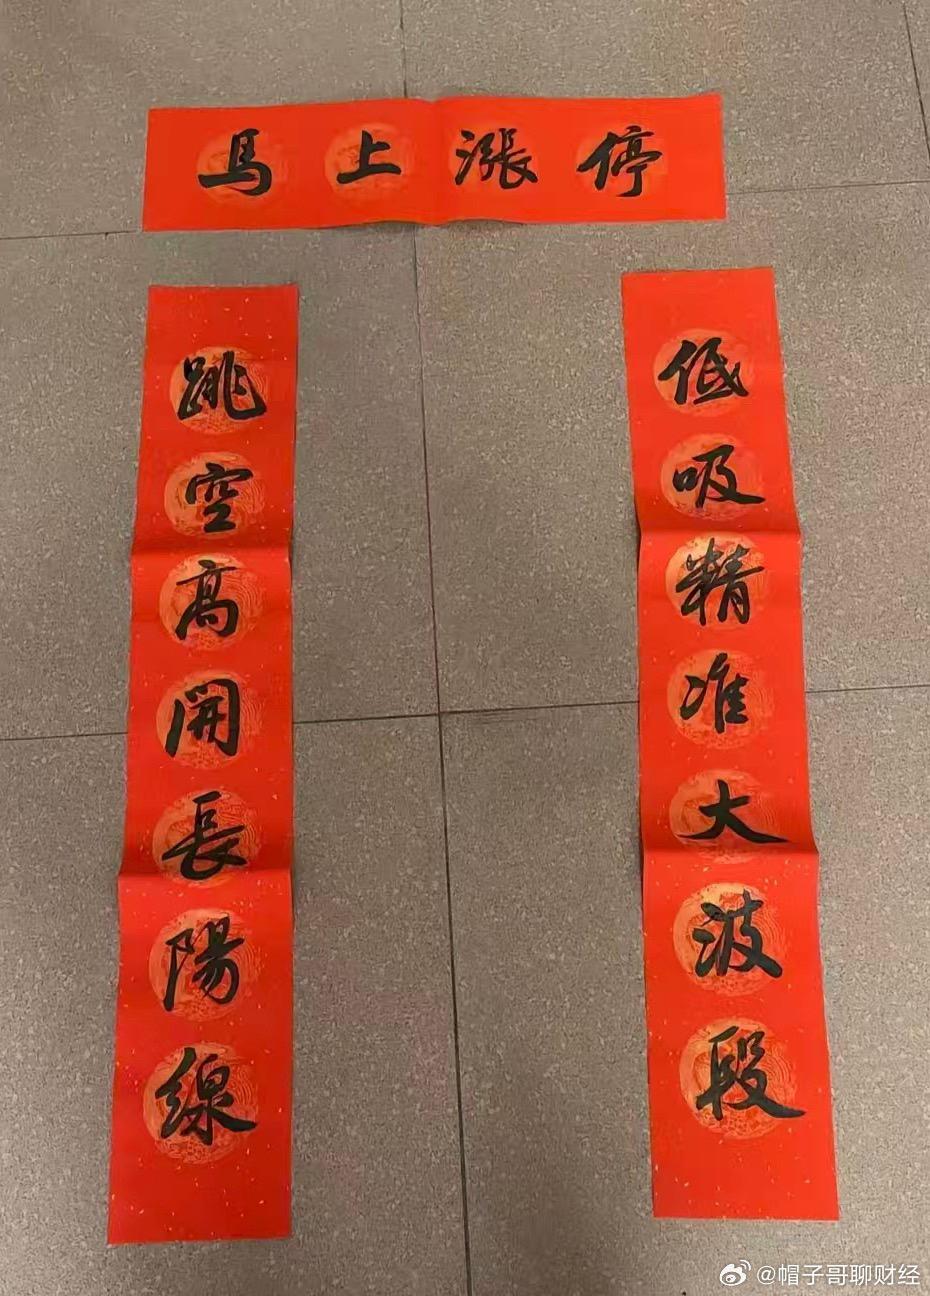 馬上漲停
跳空高開長陽線
低吸精准大波段
@帽子哥聊财经